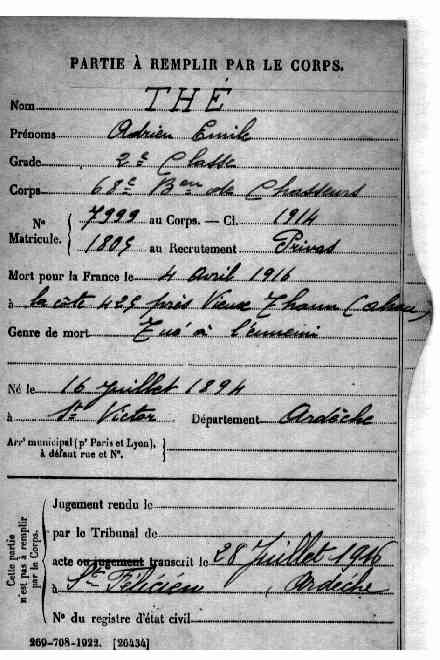 PARTIE À REMPLIR PAR LE CORPS.
Nom THÉ
Prénoms Adrien Emile
Grade 2e Classe
Corps 68e Bon de Chasseurs
No Matricule. { 7999 au Corps. — Cl. 1914
1809 au Recrutement Privas
Mort pour la France le 4 Avril 1916
à la côte 425 près Vieux Thann (Alsace)
Genre de mort Tué à l'ennemi
Né le 16 Juillet 1894
à St Victor Département Ardèche
Arrt municipal (pr Paris et Lyon),
à défaut rue et No.
Cette partie n'est pas à remplir par le Corps.
Jugement rendu le
par le Tribunal de
acte ou jugement transcrit le 28 Juillet 1916
à St Félicien (Ardèche)
No du registre d'état civil
269-708-1922. [26434]